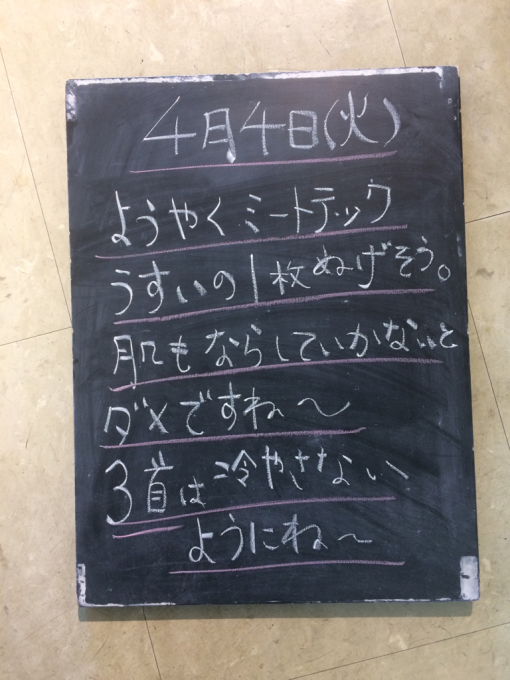 4月4日(火)
ようやくミートテック
うすいの1枚ぬげそう。
肌もならしていかないと
ダメですね〜
3首は冷やさない
ようにね〜